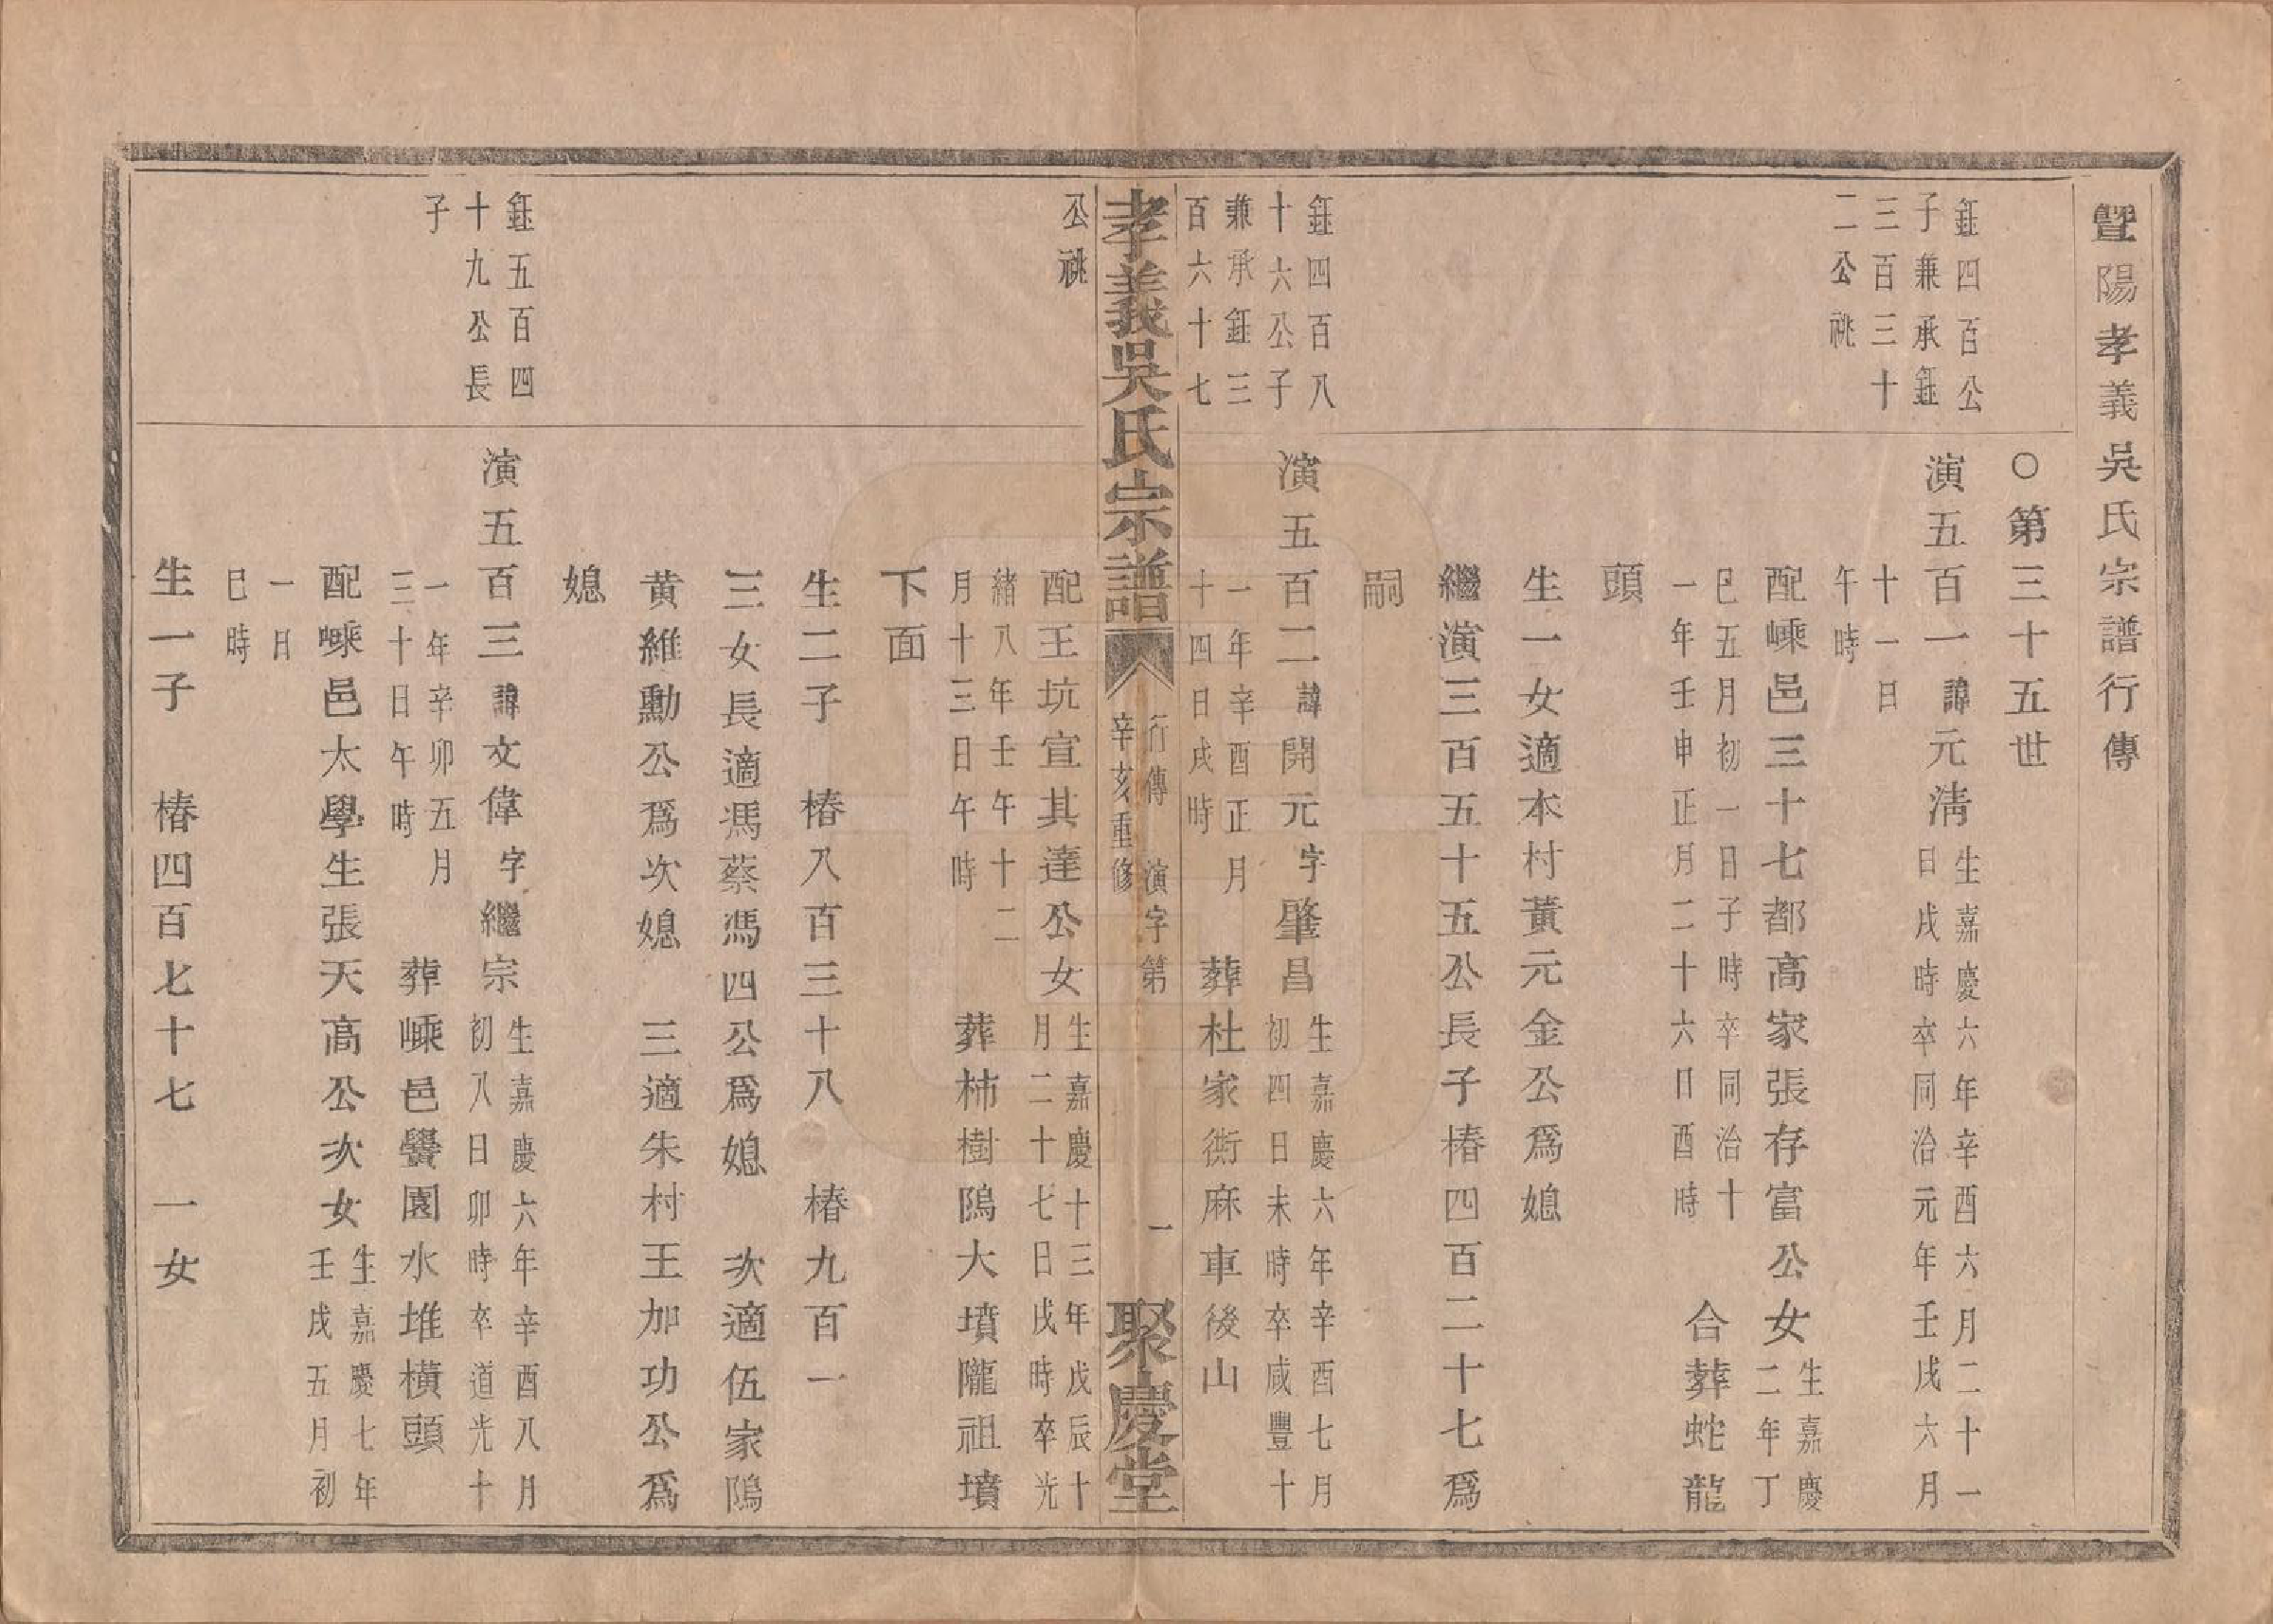 暨陽孝義吳氏宗譜行傳
○第三十五世
鈺四百公
子兼承鈺
三百三十
二公祧
演五百一諱元淸生嘉慶六年辛酉六月二十一
日戌時卒同治元年壬戌六月
十一日
午時
配嵊邑三十七都高家張存富公女生嘉慶
二年丁
巳五月初一日子時卒同治十
一年壬申正月二十六日酉時
合葬蛇龍
頭
生一女適本村黃元金公爲媳
繼演三百五十五公長子椿四百二十七爲
嗣
鈺四百八
十六公子
兼承鈺三
百六十七
演五百二諱開元字肇昌生嘉慶六年辛酉七月
初四日未時卒咸豐十
一年辛酉正月
十四日戌時
葬杜家衖麻車後山
孝義吳氏宗譜
行傳 演字第 一
辛亥重修
聚慶堂
公祧
配王坑宣其達公女生嘉慶十三年戊辰十
月二十七日戌時卒光
緖八年壬午十二
月十三日午時
葬柿樹隝大墳隴祖墳
下面
生二子 椿八百三十八 椿九百一
三女長適馮蔡馮四公爲媳 次適伍家隝
黃維勳公爲次媳 三適朱村王加功公爲
媳
鈺五百四
十九公長
子
演五百三諱文偉字繼宗生嘉慶六年辛酉八月
初八日卯時卒道光十
一年辛卯五月
三十日午時
葬嵊邑黌園水堆橫頭
配嵊邑太學生張天高公次女生嘉慶七年
壬戌五月初
一日
巳時
生一子 椿四百七十七 一女